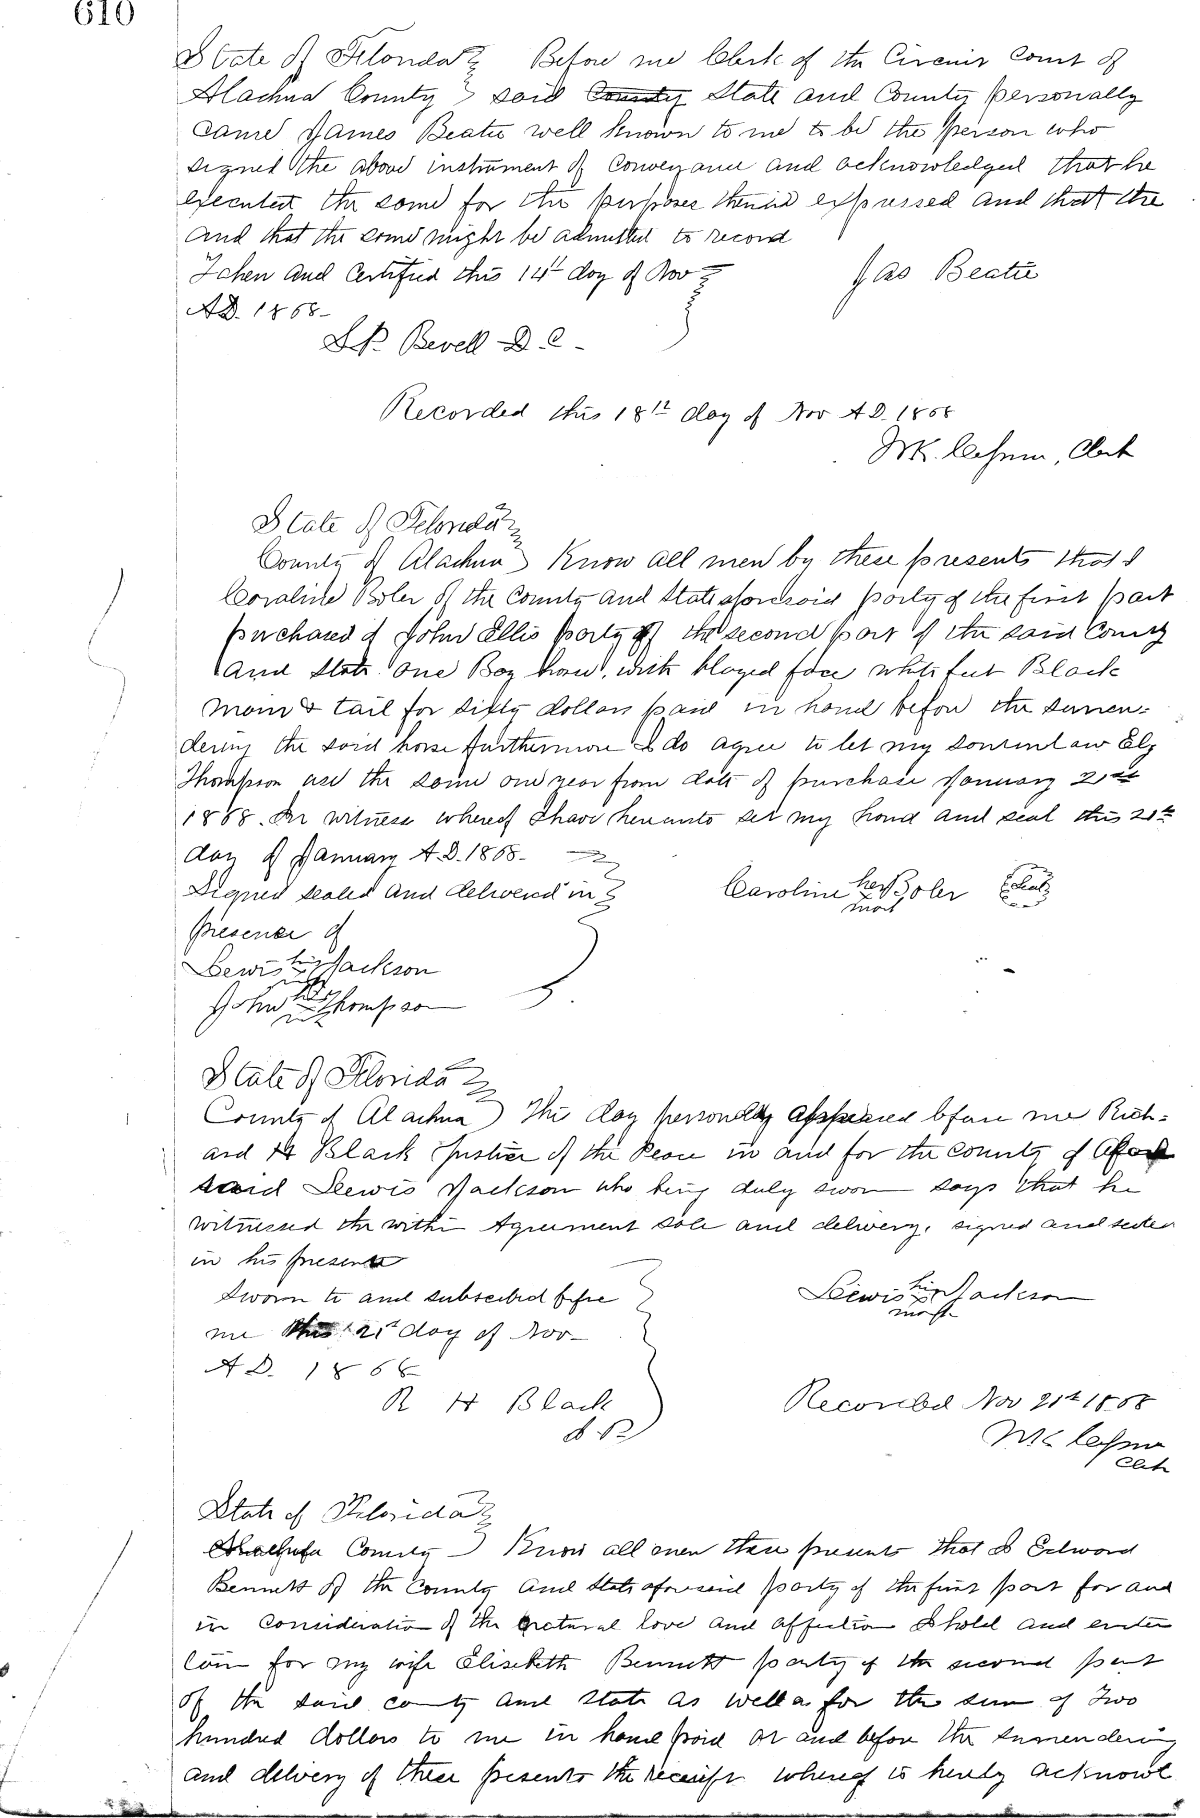 610
State of Florida } Before me Clerk of the Circuit Court of
Alachua County } said County State and County personally
came James Beatie well known to me to be the person who
signed the above instrument of conveyance and acknowledged that he
executed the same for the purposes therein expressed and that the
and that the same might be admitted to record
Taken and Certified this 14th day of Nov } Jas Beatie
A.D. 1868-
S.P. Bevell D.C-
Recorded this 18th day of Nov A.D. 1868
Clerk
State of Florida }
County of Alachua } Know all men by these presents that I
Coraline Boler of the County and State aforesaid party of the first part
purchased of John Ellis party of the second part of the said County
and State. One Bay horse, with blazed face white feet Black
main & tail for sixty dollars paid in hand before the surren-
dering the said horse furthermore I do agree to let my soninlaw Ely
Thompson use the same one year from date of purchase January 21st
1868. In witness whereof I have hereunto set my hand and seal this 21st
day of January A.D. 1868-
Signed sealed and delivered in } Caroline her Boler Seal
mark
presence of
Lewis his Jackson
John his Thompson
State of Florida }
County of Alachua } The day personally appeared before me Rich-
ard H Black Justice of the Peace in and for the County of afore
said Lewis Jackson who being duly sworn says that he
witnessed the within Agreement sale and delivery, signed and sealed
in his presence
Sworn to and subscribed before } Lewis his Jackson
mark
me this 21st day of Nov-
A.D. 1868
R H Black
J.P.
Recorded Nov 21st 1868
Clerk
State of Florida }
Alachua County } Know all men these presents that I Edward
Bennett of the County and State aforesaid party of the first part for and
in consideration of the natural love and affection I hold and enter
tain for my wife Elisebeth Bennett party of the second part
of the said county and State as well as for the sum of Two
hundred dollars to me in hand paid at and before the surrendering
and delivery of these presents the receipt whereof is hereby acknowl